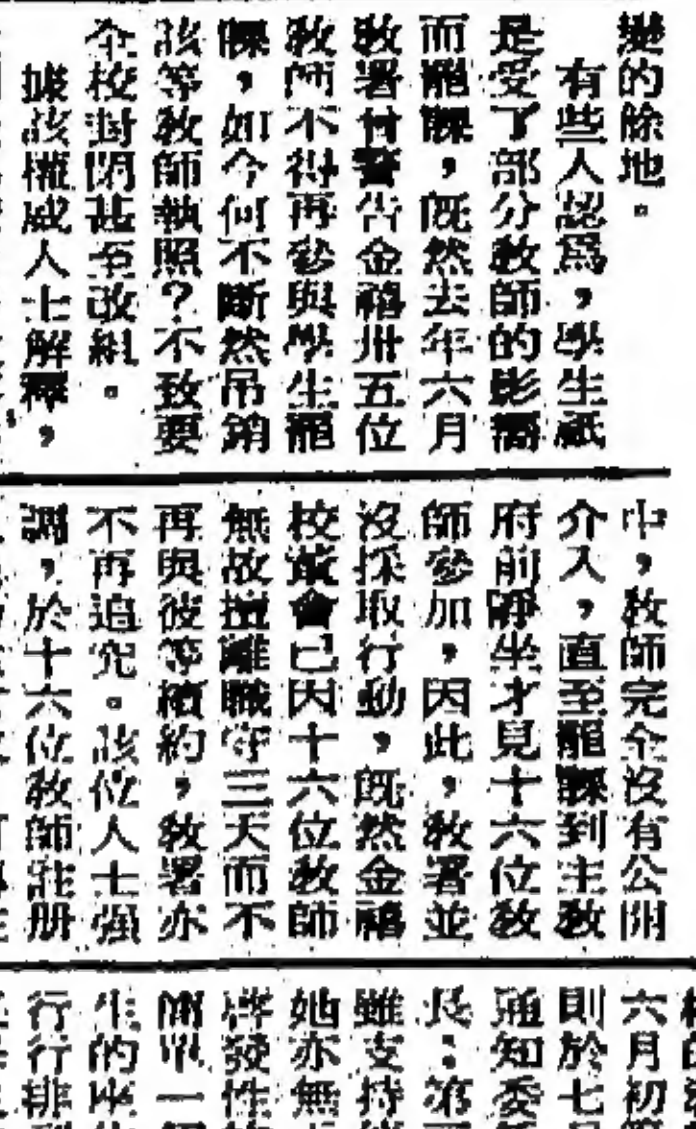 變的餘地。
有些人認爲，學生祇
是受了部分教師的影響
而罷課，既然去年六月
教署曾警告金禧卅五位
教師不得再參與學生罷
課，如今何不斷然吊銷
該等教師執照？不致要
全校封閉甚至改組。
據該權威人士解釋，
中，教師完全沒有公開
介入，直至罷課到主教
府前靜坐才見十六位教
師參加，因此，教署並
沒採取行動，既然金禧
校董會已因十六位教師
無故擅離職守三天而不
再與彼等續約，教署亦
不再追究。該位人士强
調，於十六位教師註册
六月初
則於七
通知委
長：第
雖支持
她亦無
啓發性
簡單一
生的座
行行排